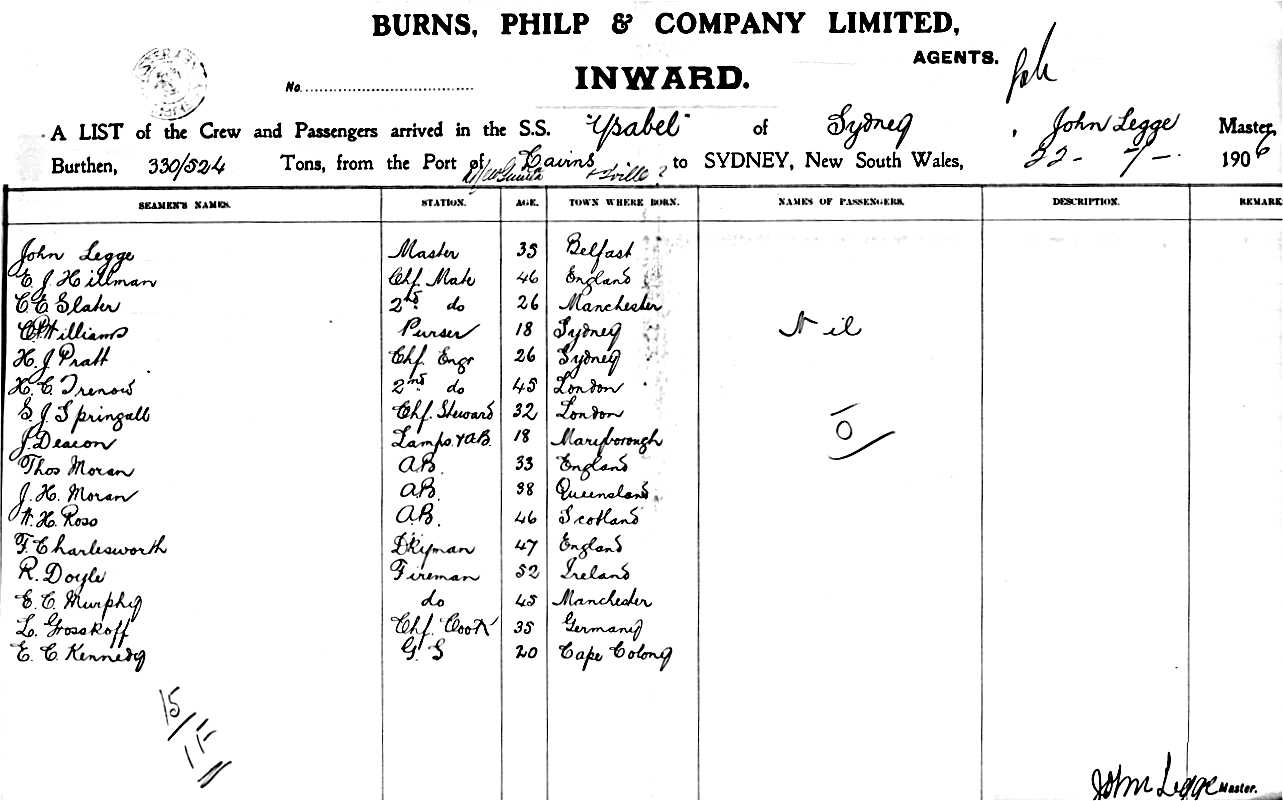 BURNS, PHILP & COMPANY LIMITED,
AGENTS.
INWARD.
No.
A LIST of the Crew and Passengers arrived in the S.S. "Ysabel" of Sydney, John Legge Master,
Burthen, 330/524 Tons, from the Port of Cairns & Tville to SYDNEY, New South Wales, 22 - 7 - 1906
SEAMEN'S NAMES. STATION. AGE. TOWN WHERE BORN. NAMES OF PASSENGERS. DESCRIPTION. REMARK
John Legge Master 35 Belfast
E. J. Hillman Chf. Mate 46 England
C E Slater 2nd do 26 Manchester
C P Williams Purser 18 Sydney Nil
H. J Pratt Chf. Engr 26 Sydney
H. C. Trenow 2nd do 45 London
S. J. Springall Chf. Steward 32 London
O
J. Deacon Lamps & A.B. 18 Maryborough
Thos Moran A.B. 33 England
J. H. Moran A.B. 38 Queensland
W. H. Ross A.B. 46 Scotland
F. Charlesworth Dkyman 47 England
R. Doyle Fireman 52 Ireland
E. C. Murphy do 45 Manchester
L. Grosskoff Chf. Cook 35 Germany
E. C. Kennedy G. S 20 Cape Colony
15
John Legge Master.